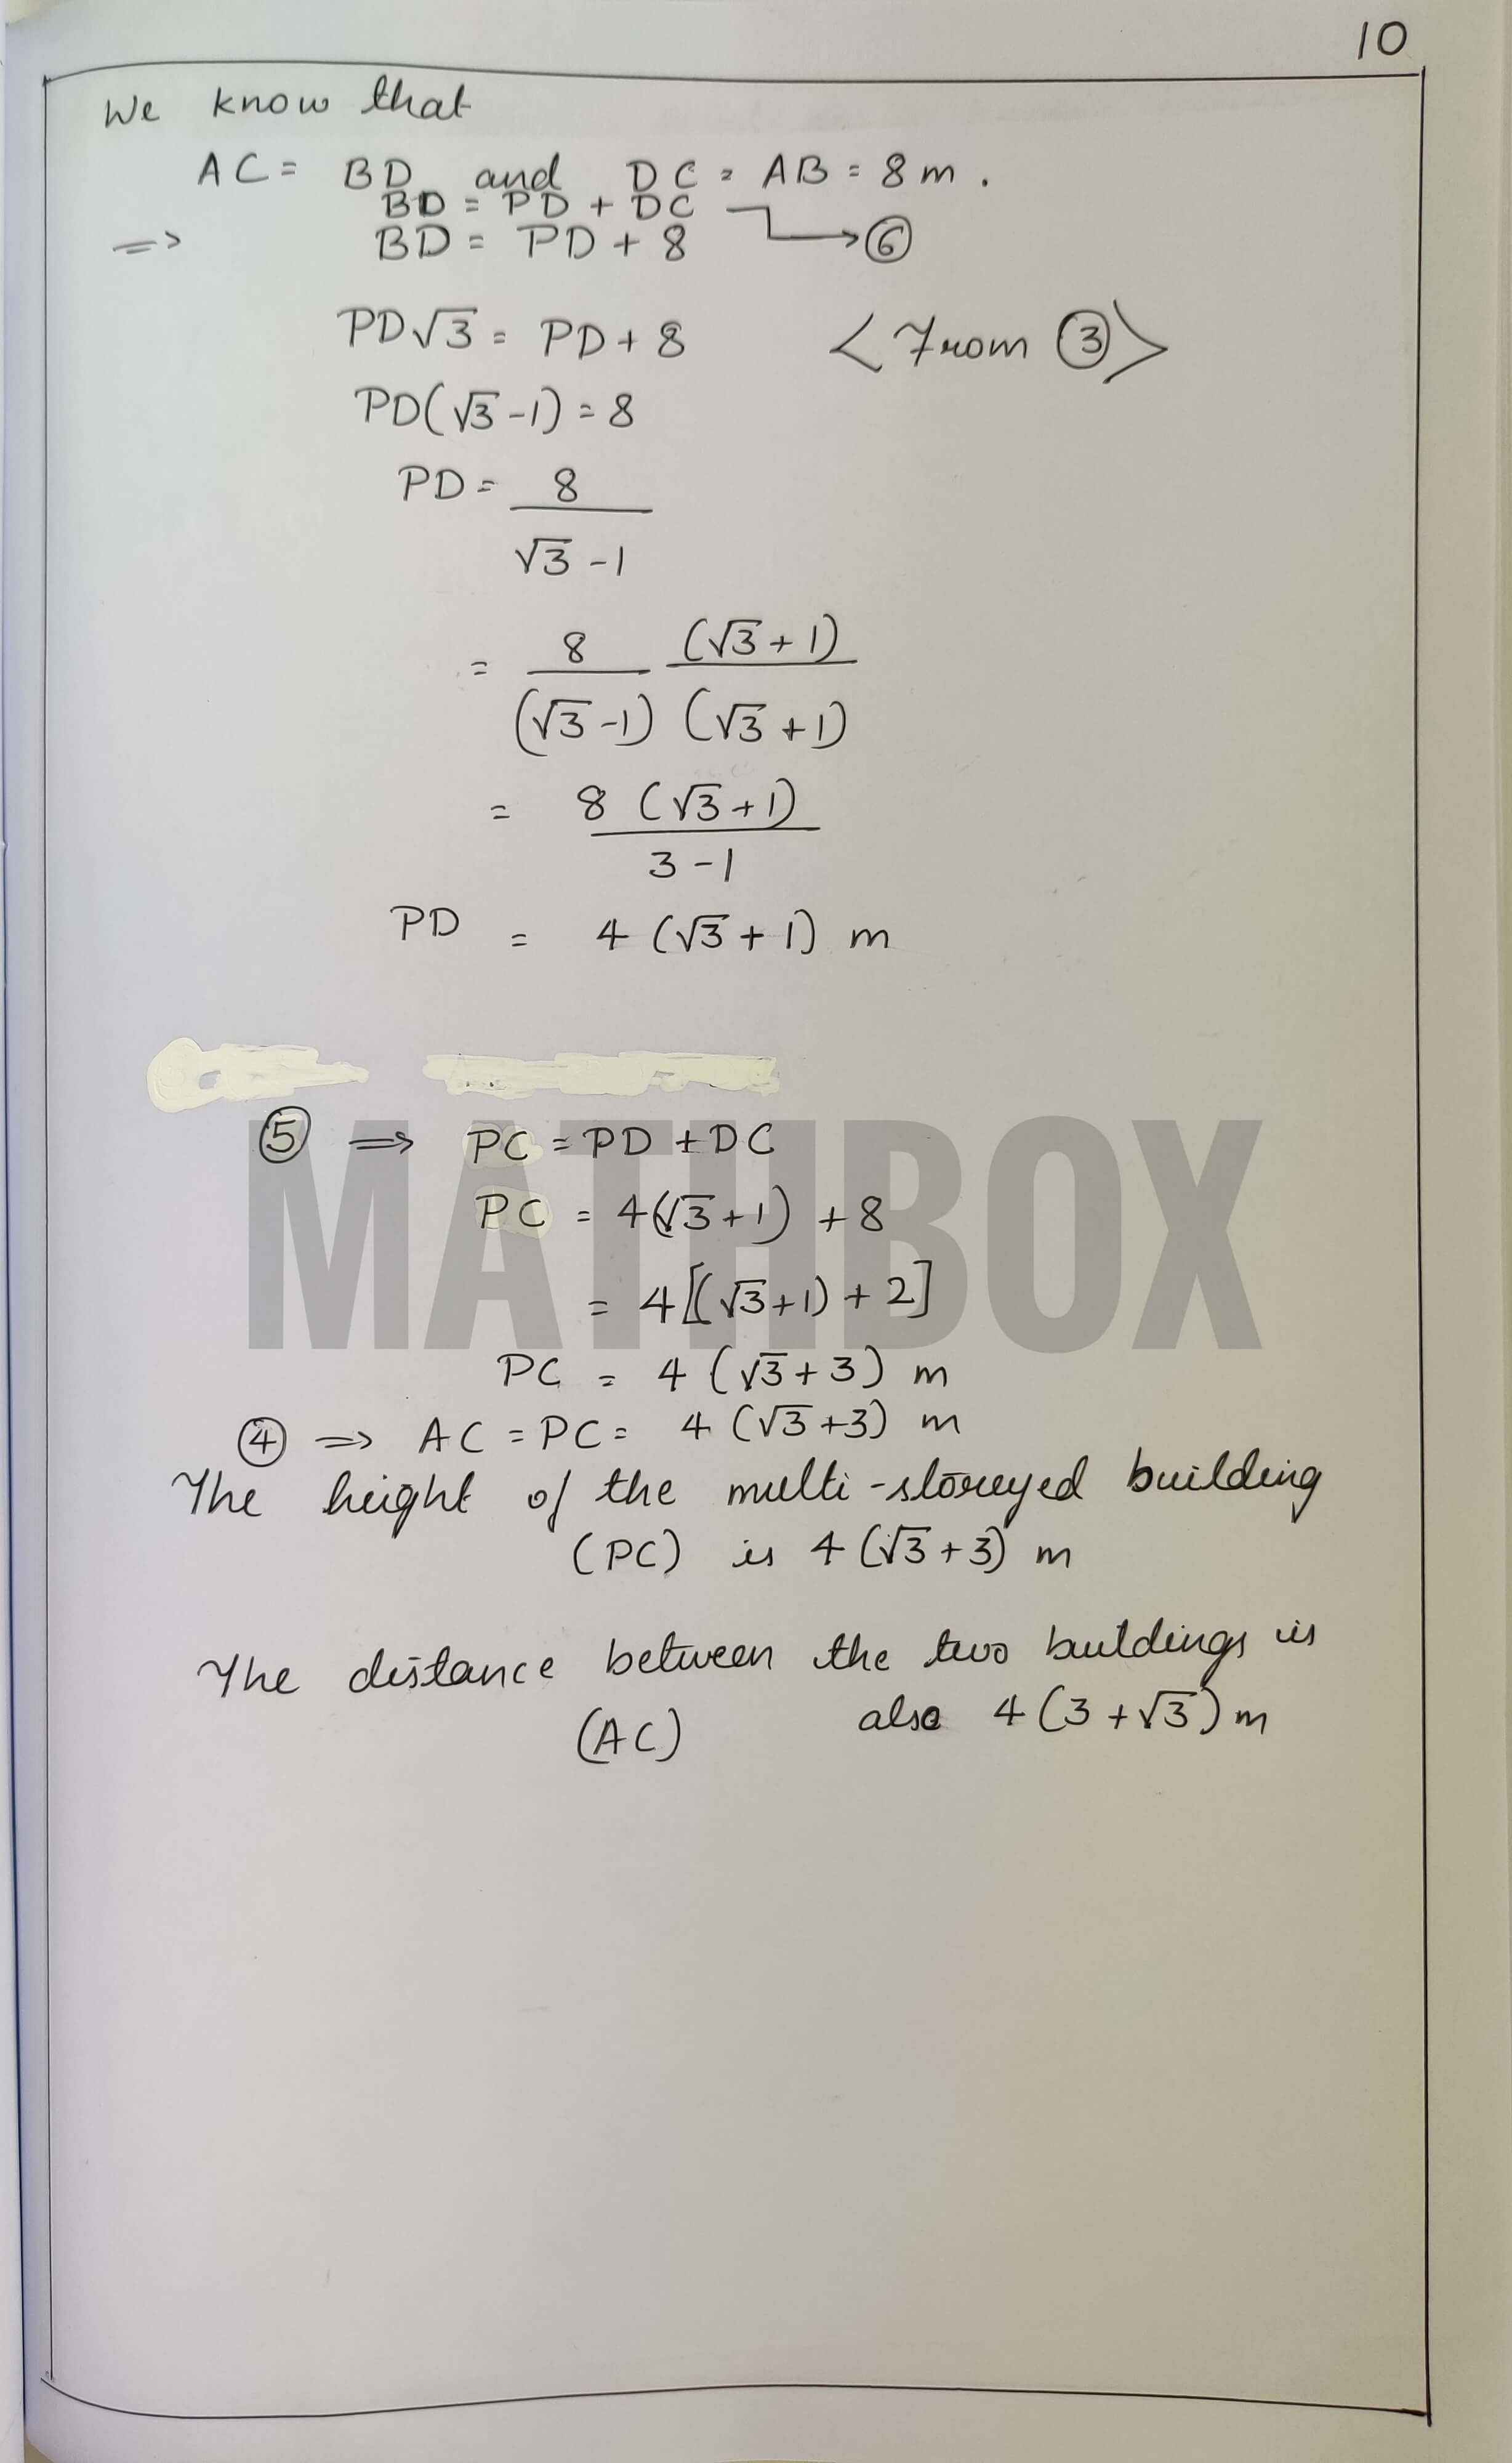 10
We know that
AC = BD and DC = AB = 8m.
BD = PD + DC
=> BD = PD + 8 → ⑥
PD√3 = PD + 8 <From ③>
PD(√3 - 1) = 8
PD = 8
√3 - 1
= 8 (√3 + 1)
(√3 - 1) (√3 + 1)
= 8 (√3 + 1)
3 - 1
PD = 4 (√3 + 1) m
⑤ => PC = PD + DC
PC = 4(√3 + 1) + 8
= 4[(√3 + 1) + 2]
PC = 4 (√3 + 3) m
④ => AC = PC = 4 (√3 + 3) m
The height of the multi-storeyed building
(PC) is 4 (√3 + 3) m
The distance between the two buildings is
(AC) also 4 (3 + √3) m
MATHBOX